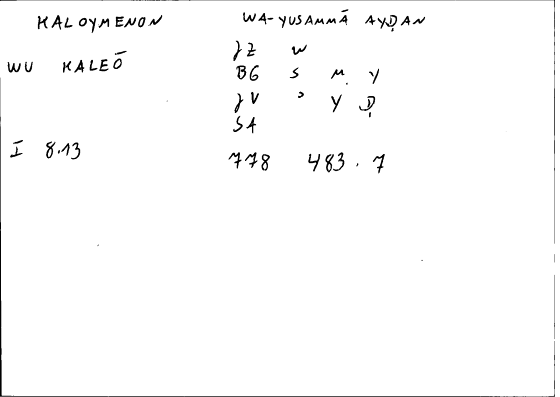 KALOYMENON WA-YUSAMMĀ AYḌAN
JZ W
WU KALEŌ BG S M Y
JV ʾ Y Ḍ
SA
I 8.13 778 483.7